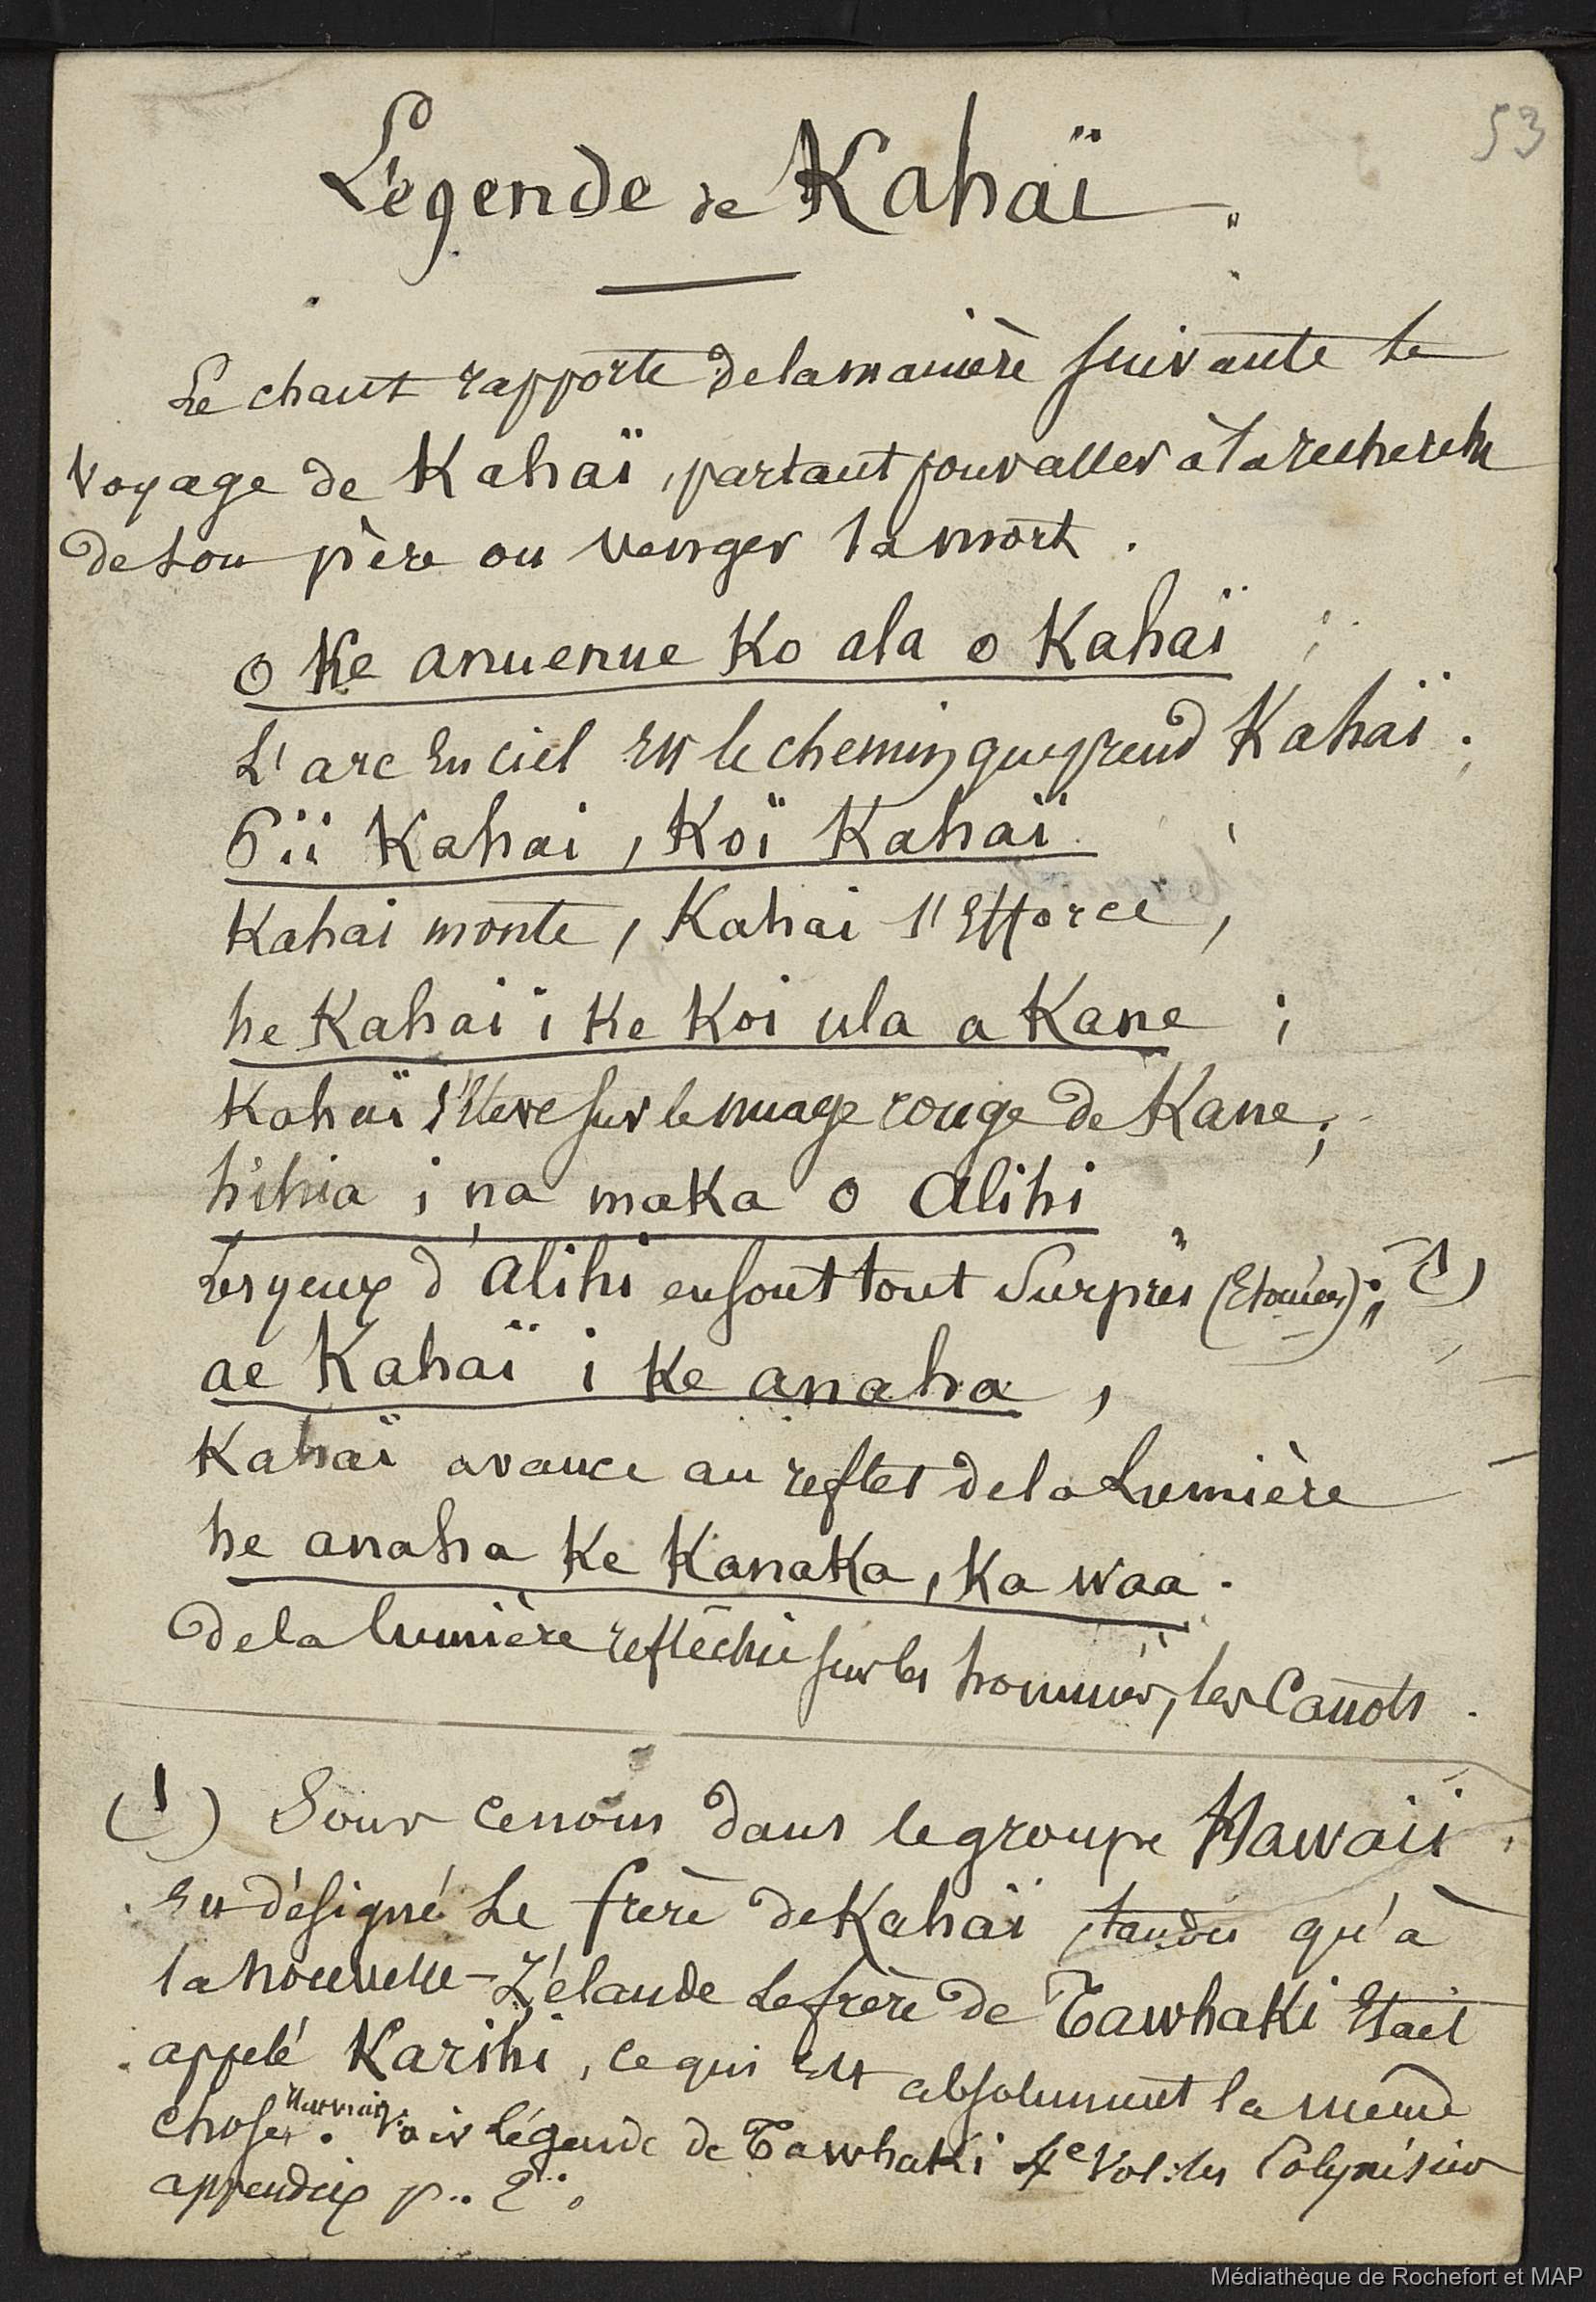 53
Légende de Kahaï.
Le chant rapporte de la manière suivante le
voyage de Kahaï, partant pour aller à la recherche
de son père ou venger sa mort.
o Ke anuenue Ko ala o Kahaï ;
L'arc en ciel est le chemin que prend Kahaï.
Pii Kahai, Koï Kahaï
Kahai monte, Kahai s'efforce,
he Kahai i Ke Koi ula a Kane ;
Kahaï s'élève sur le nuage rouge de Kane ;
hihia i na maka o Alihi
Les yeux d'Alihi en sont tout surpris (étonnés) ; (1)
ae Kahaï i Ke anaha,
Kahaï avance au reflet de la lumière
he anaha Ke KanaKa, Ka waa.
de la lumière refléchie sur les hommes, les canots.
(1) Sous ce nom dans le groupe Hawaii
est désigné le frère de Kahaï tandis qu'à
la nouvelle-Zélande le frère de TawhaKi était
appelé Karihi, ce qui est absolument la même
chose. Voir légende de TawhaKi 4e Vol: les Polynésiens
appendix p.. 2
Médiathèque de Rochefort et MAP